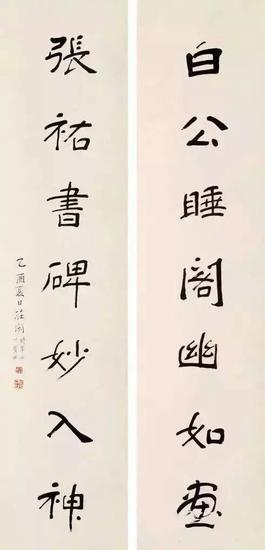 白公睡阁幽如画
張祜書碑妙入神
乙酉夏日莊閑